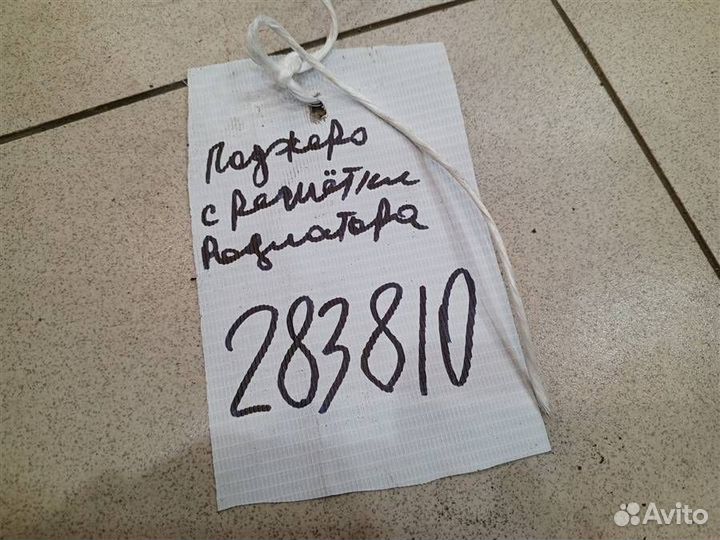 Поджеро
с решётки
Радиатора
283810
Avito